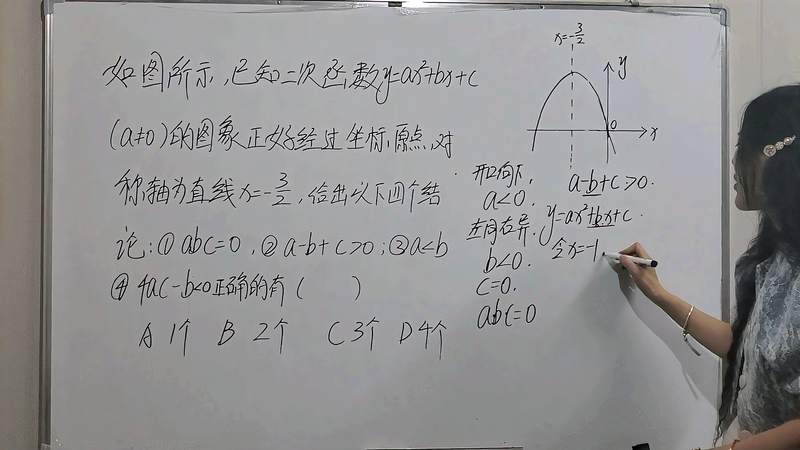 如图所示,已知二次函数y=ax²+bx+c
(a≠0)的图象正好经过坐标原点,对
称轴为直线x=-3/2,给出以下四个结
论:①abc=0,②a-b+c>0;③a<b
④4ac-b<0正确的有( )
A 1个 B 2个 C 3个 D 4个
x=-3/2
y
0
x
开口向下,
a<0.
左同右异.
b<0.
c=0.
abc=0
a-b+c>0.
y=ax²+bx+c.
令x=-1,